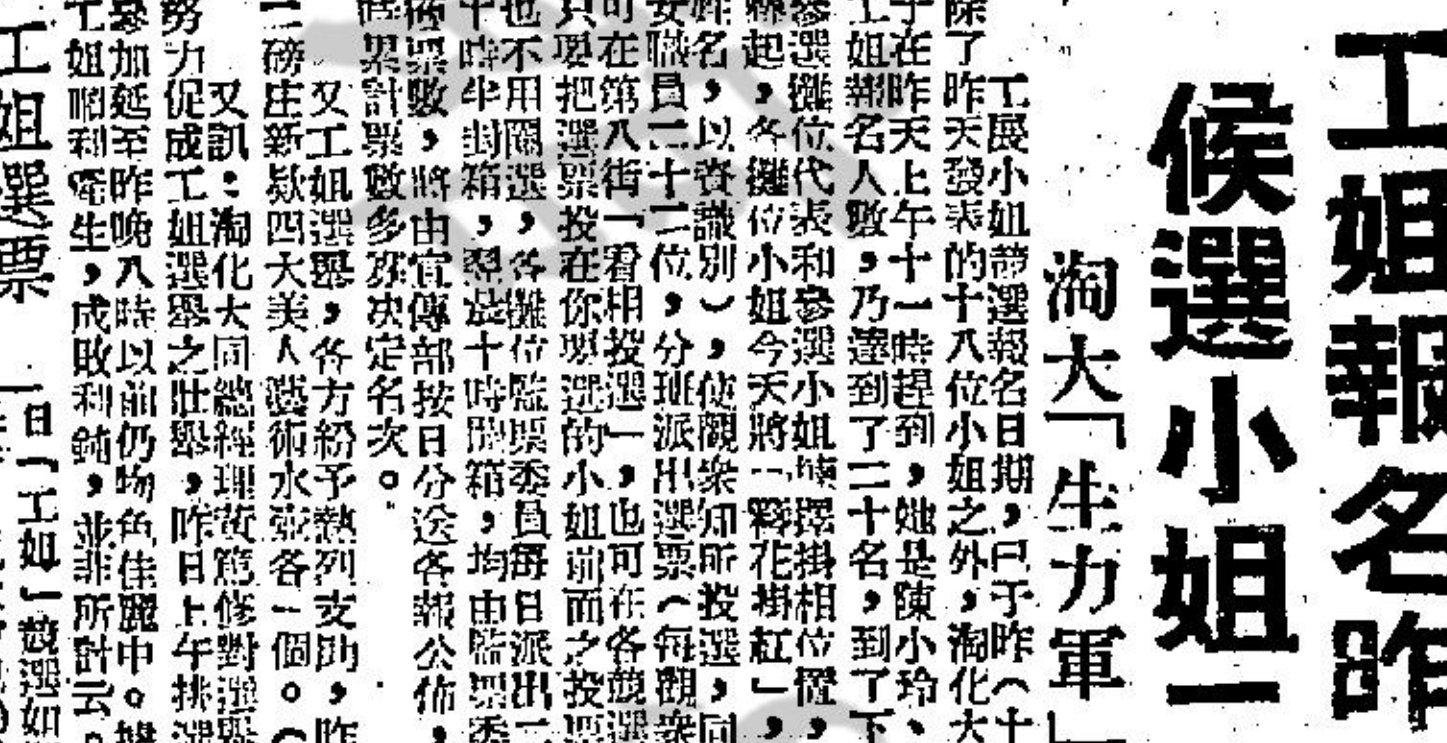 工姐報名昨
候選小姐一
淘大「生力軍」
工展小姐競選報名日期,已于昨(十
除了昨天發表的十八位小姐之外,淘化大
于在昨天上午十一時趕到,她是陳小玲、
工姐報名人數,乃達到了二十名,到了下
參選攤位代表和參選小姐 擇掛相位置,
起,各攤位小姐今天將「簪花掛紅」,
昨名,以資識別),使觀衆知所投選,同
女職員二十二位,分班派出選票(每觀衆
可在第八街「看相投選」,也可在各競選
只要把選票投在你要選的小姐前面之投票
也不用圈選,各攤位監票委員每日派出二
十時半封箱,翌晨十時開箱,均由監票委
票數,將由宣傳部按日分送各報公佈,
累計票數多寡决定名次。
又工姐選舉,各方紛予熱列支助,昨
二磅庄新欵四大美人藝術水壺各一個。(
又訊:淘化大同總經理黃篤修對選舉
努力促成工姐選舉之壯舉,昨日上午挑選
參加延至昨晚八時以前仍物色佳麗中。據
工姐 利 生,成敗利鈍,並非所計云。
工姐選票
日「工姐」競選如